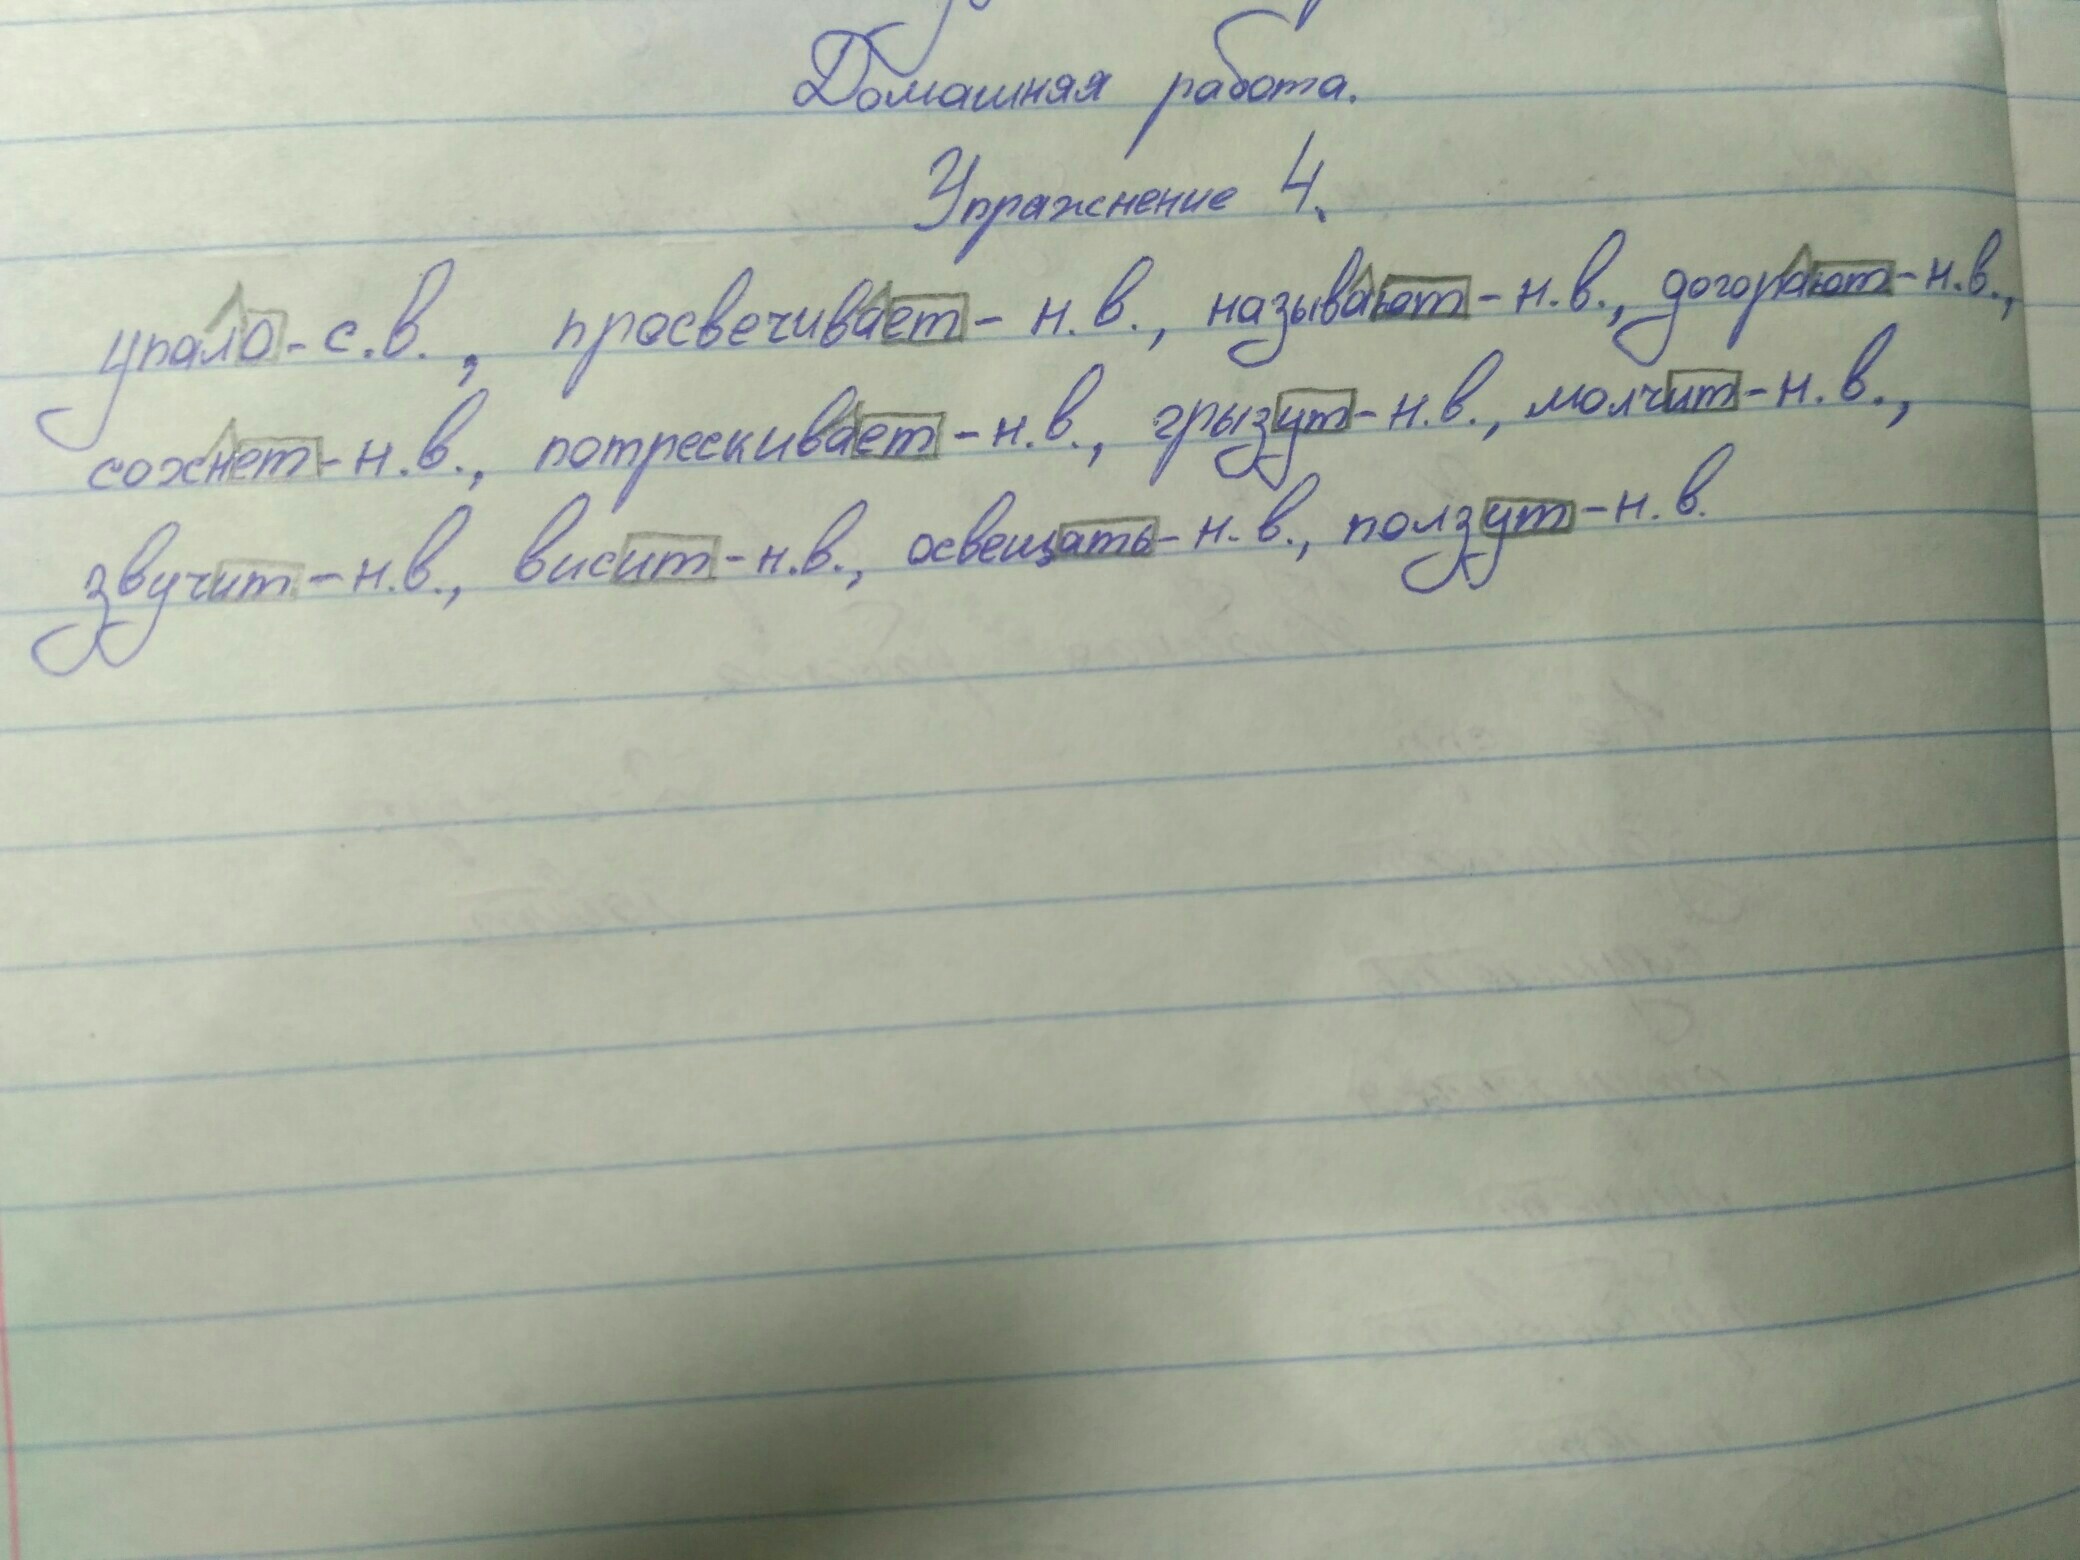 Домашняя работа.
Упражнение 4.
упало-с.в., просвечивает-н.в., называют-н.в., догорают-н.в.,
сохнет-н.в., потрескивает-н.в., грызут-н.в., молчит-н.в.,
звучит-н.в., висит-н.в., освещать-н.в., ползут-н.в.